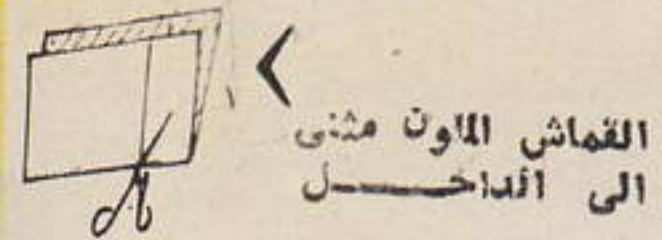 القماش الملون مثنى
الى الداخـــــل